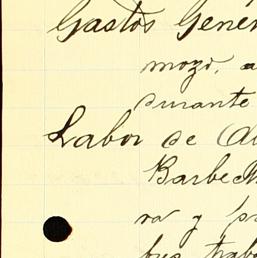 Gastos Gener
mozo, a
durante
Labor de Al
Barbech
ra y pr
bus trab